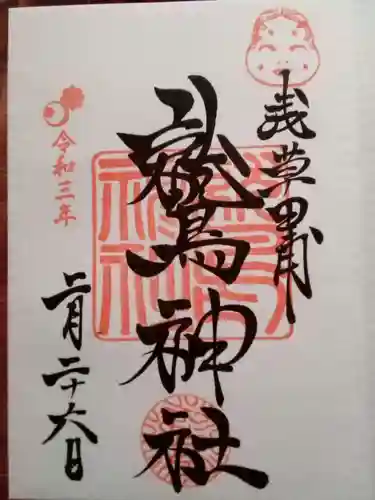 浅草田甫
鷲鳥神社
令和三年
二月二十六日